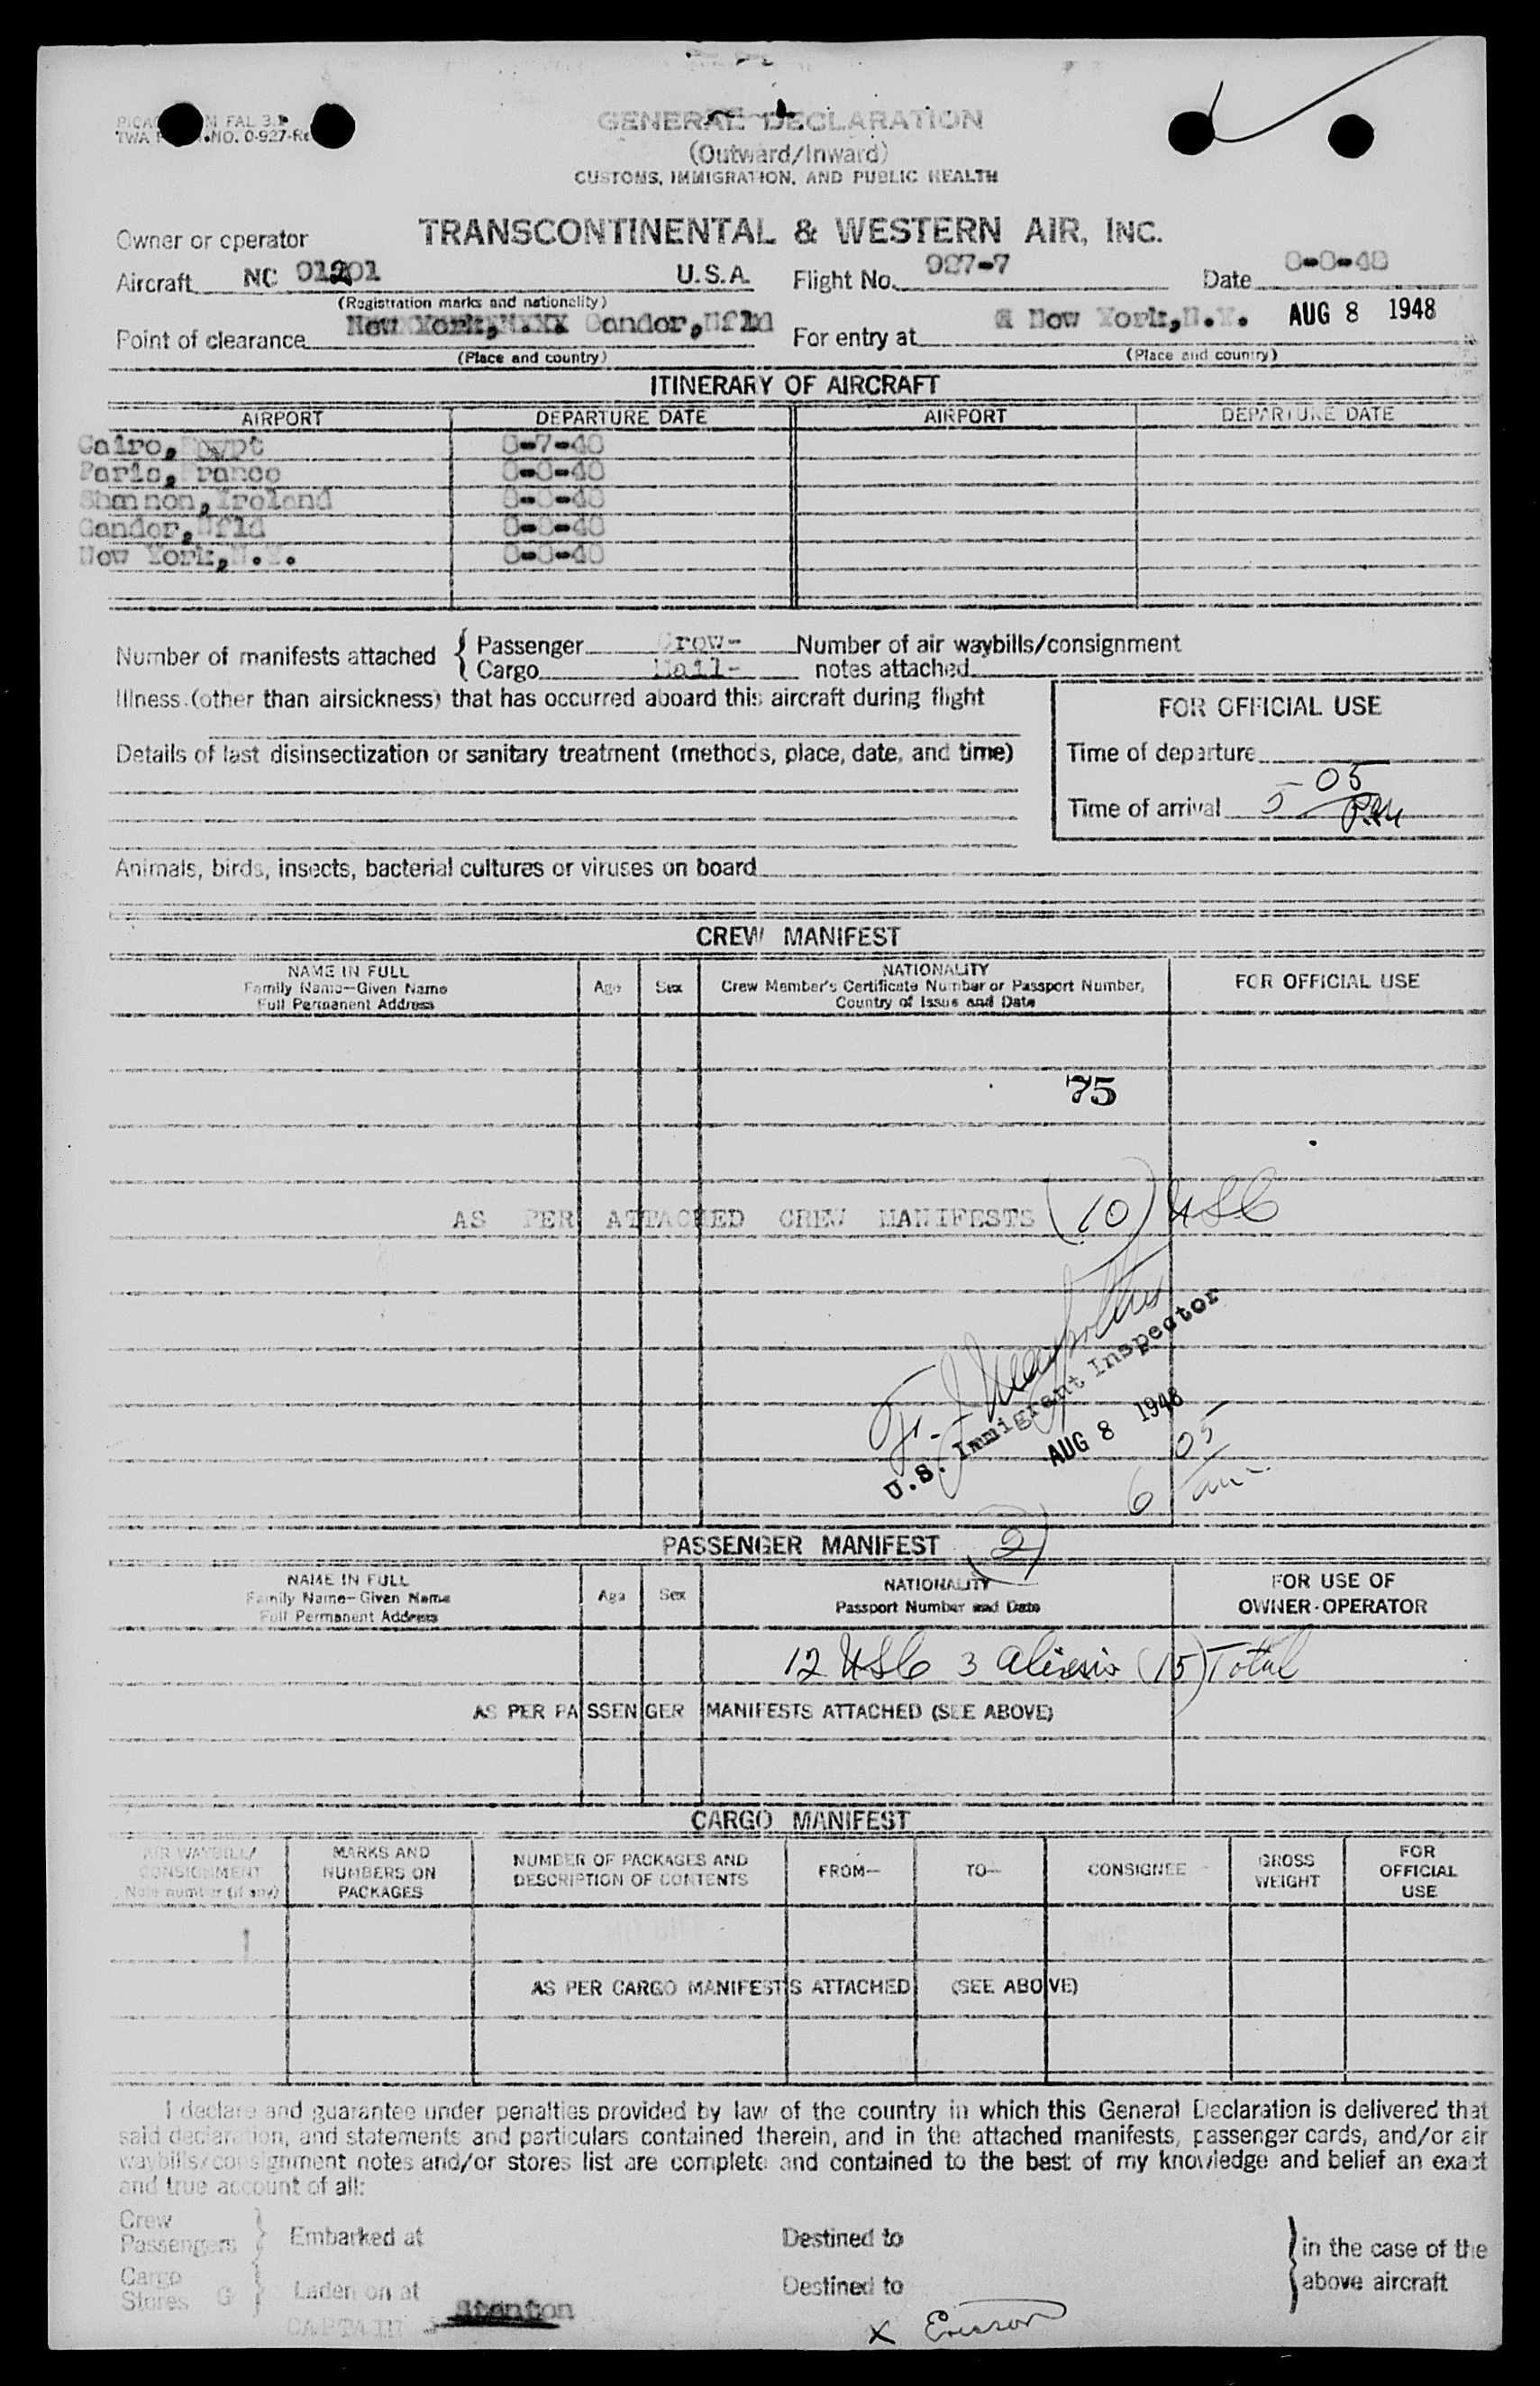 GENERAL DECLARATION
(Outward/Inward)
CUSTOMS, IMMIGRATION, AND PUBLIC HEALTH
Owner or operator TRANSCONTINENTAL & WESTERN AIR, INC.
Aircraft NC U.S.A. Flight No. 927-7 Date 8-8-48
(Registration marks and nationality)
Point of clearance Gander, Nfld For entry at New York, N.Y. AUG 8 1948
(Place and country) (Place and country)
ITINERARY OF AIRCRAFT
AIRPORT DEPARTURE DATE AIRPORT DEPARTURE DATE
Cairo, Egypt 8-7-48
Paris, France 8-8-48
Shannon, Ireland 8-8-48
Gander, Nfld 8-8-48
New York, N.Y. 8-8-48
Number of manifests attached { Passenger Crew- Number of air waybills/consignment
Cargo Mail- notes attached
Illness (other than airsickness) that has occurred aboard this aircraft during flight
FOR OFFICIAL USE
Details of last disinsectization or sanitary treatment (methods, place, date, and time)
Time of departure
Time of arrival 5 05 P.M
Animals, birds, insects, bacterial cultures or viruses on board
CREW MANIFEST
NAME IN FULL
Family Name—Given Name
Full Permanent Address
Age Sex
NATIONALITY
Crew Member's Certificate Number or Passport Number,
Country of Issue and Date
FOR OFFICIAL USE
75
AS PER ATTACHED CREW MANIFESTS (10) USC
U.S. Immigrant Inspector
AUG 8 1948
6 05
PASSENGER MANIFEST (2)
NAME IN FULL
Family Name—Given Name
Full Permanent Address
Age Sex
NATIONALITY
Passport Number and Date
FOR USE OF
OWNER-OPERATOR
12 USC 3 aliens (15) Total
AS PER PASSENGER MANIFESTS ATTACHED (SEE ABOVE)
CARGO MANIFEST
AIR WAYBILL/
CONSIGNMENT
Note number (if any)
MARKS AND
NUMBERS ON
PACKAGES
NUMBER OF PACKAGES AND
DESCRIPTION OF CONTENTS
FROM—
TO—
CONSIGNEE
GROSS
WEIGHT
FOR
OFFICIAL
USE
AS PER CARGO MANIFESTS ATTACHED (SEE ABOVE)
I declare and guarantee under penalties provided by law of the country in which this General Declaration is delivered that
said declaration, and statements and particulars contained therein, and in the attached manifests, passenger cards, and/or air
waybills/consignment notes and/or stores list are complete and contained to the best of my knowledge and belief an exact
and true account of all:
Crew
Passengers } Embarked at Destined to
Cargo
Stores } Laden on at Destined to
} in the case of the
above aircraft
CAPTAIN Stanton
x Ericson